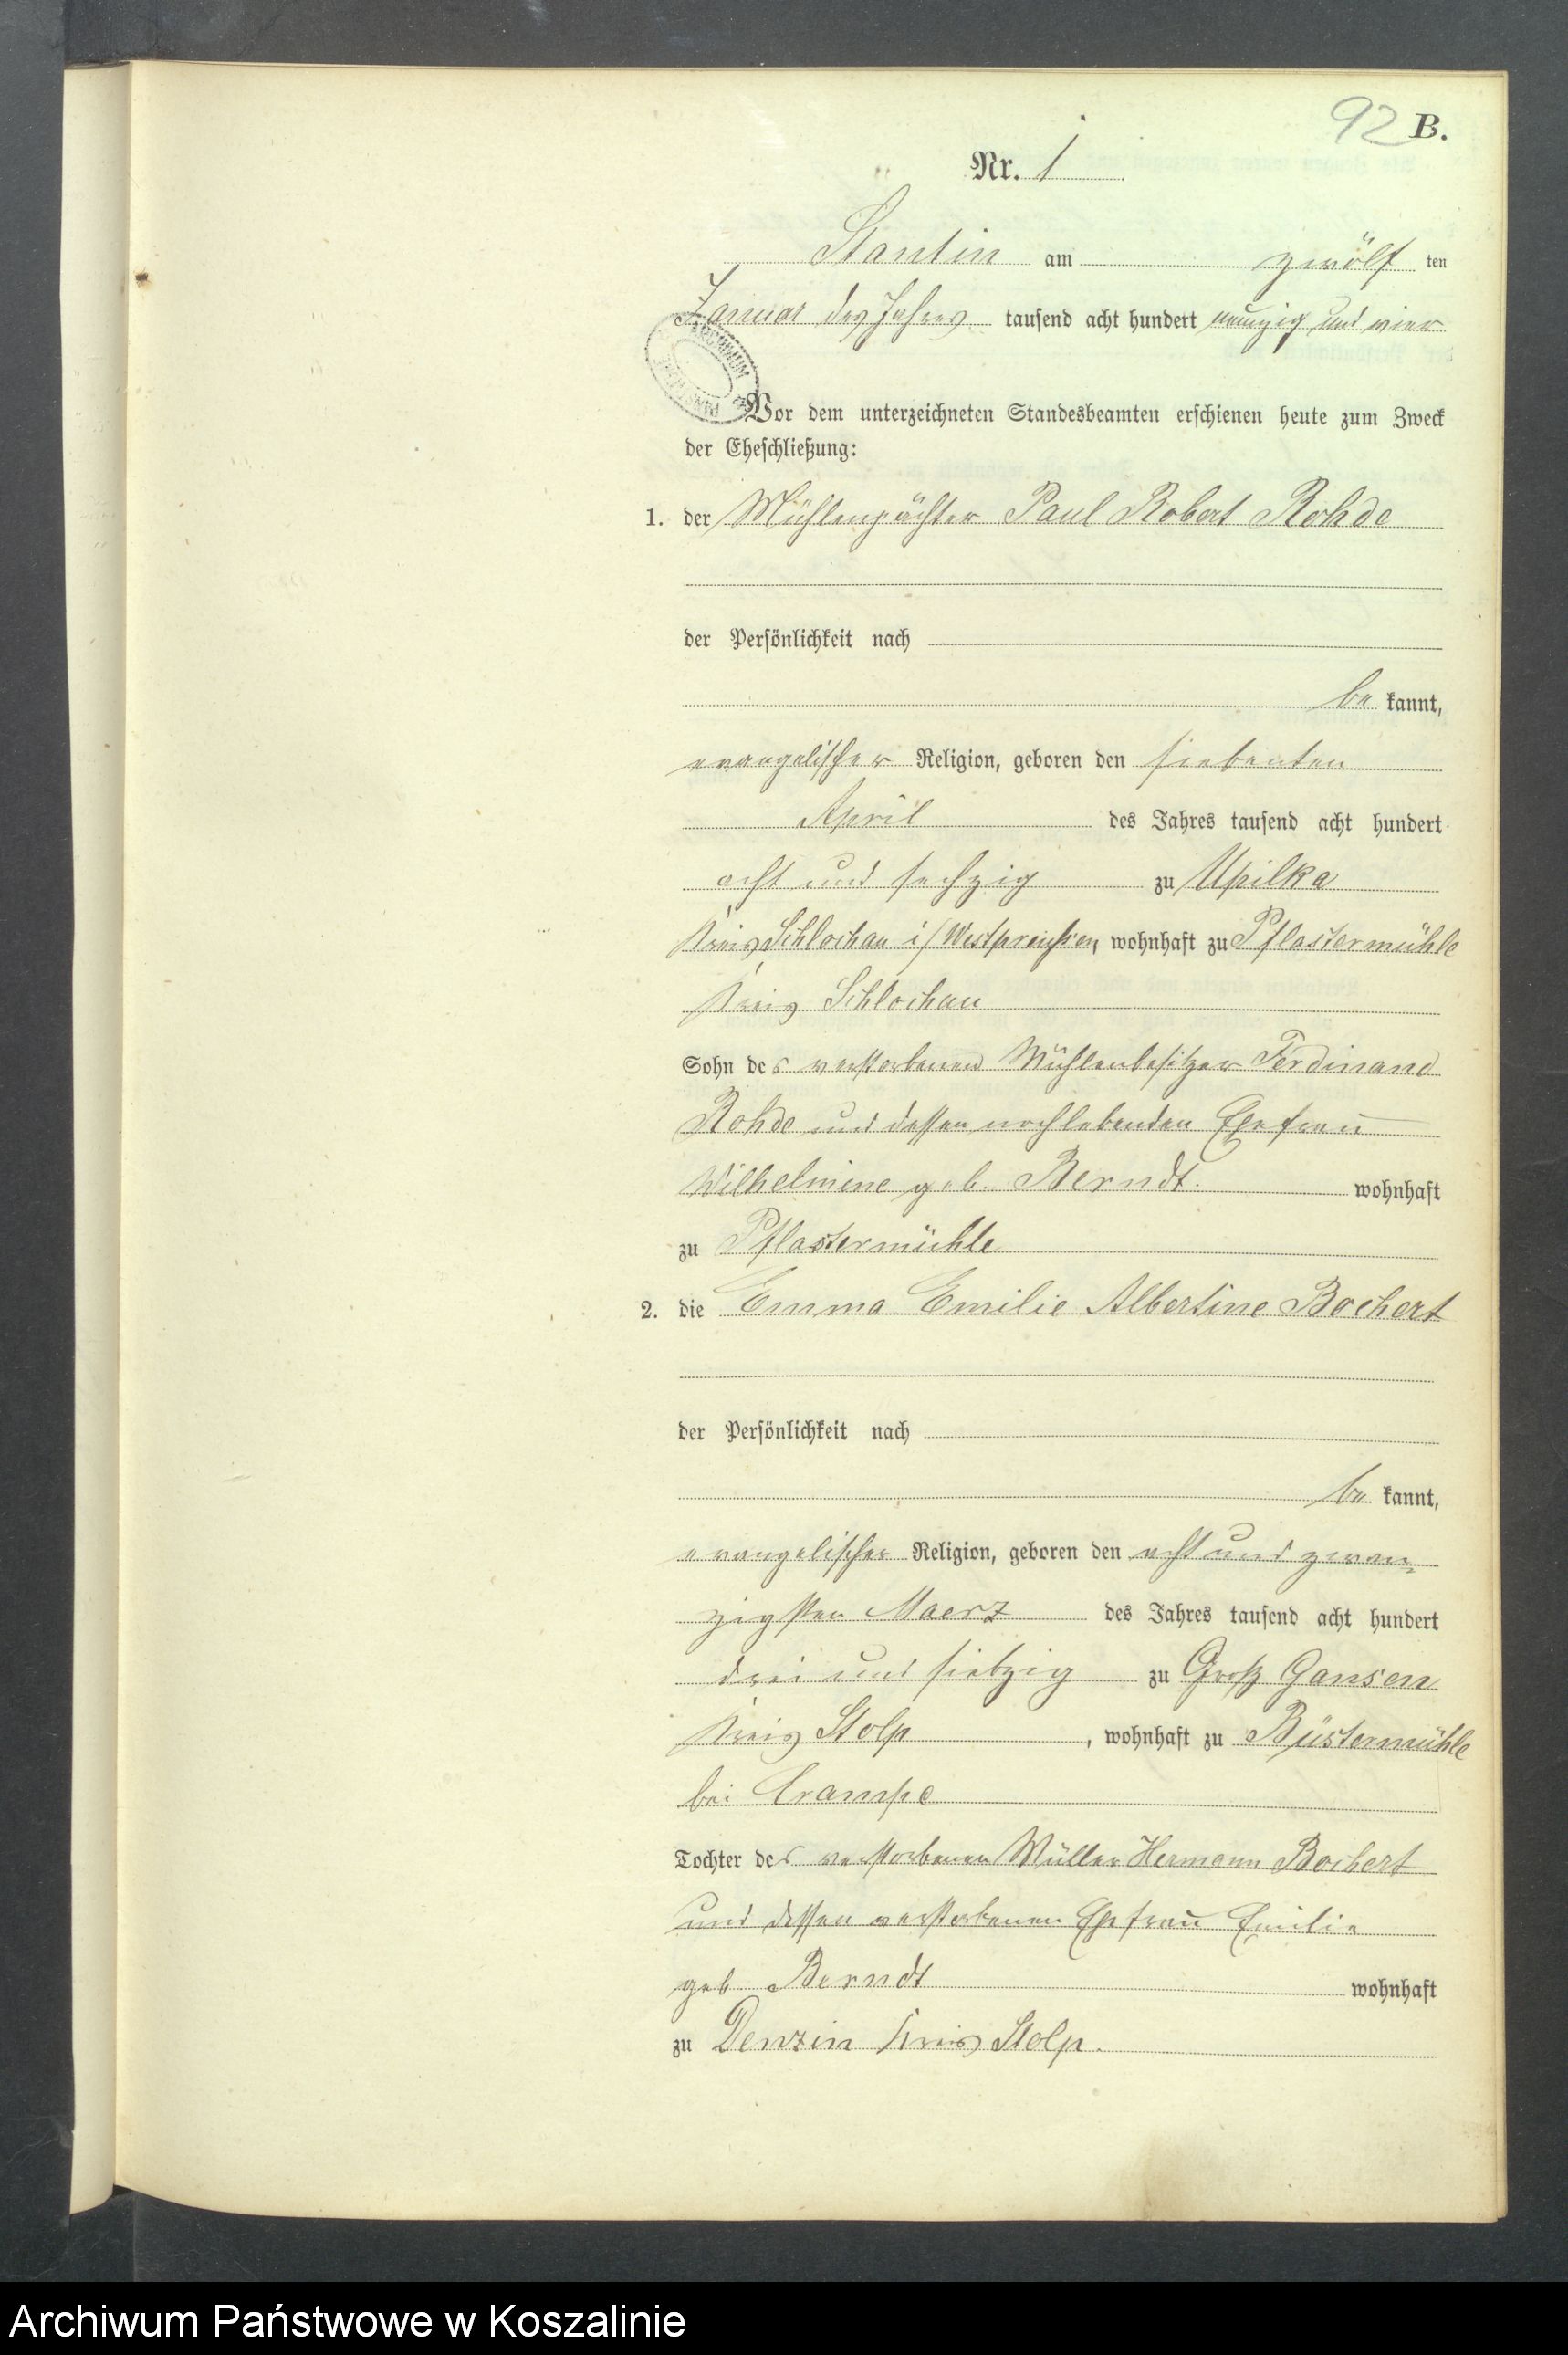 92 B.
Nr. 1
Stantin am zwölf ten
Januar des Jahres tausend acht hundert neunzig und vier
ARCHIWUM
Vor dem unterzeichneten Standesbeamten erschienen heute zum Zweck
der Eheschließung:
1. der Mühlenpächter Paul Robert Rohde
der Persönlichkeit nach
be kannt,
evangelischer Religion, geboren den siebenten
April des Jahres tausend acht hundert
acht und sechzig zu Upilka
Kreis Schlochau i/Westpreußen, wohnhaft zu Pflastermühle
Kreis Schlochau
Sohn des verstorbenen Mühlenbesitzer Ferdinand
Rohde und dessen noch lebenden Ehefrau
Wilhelmine geb. Berndt. wohnhaft
zu Pflastermühle
2. die Emma Emilie Albertine Bochert
der Persönlichkeit nach
be kannt,
evangelischer Religion, geboren den acht und zwan-
zigsten Maerz des Jahres tausend acht hundert
drei und siebzig zu Groß Gansen
Kreis Stolp, wohnhaft zu Büstermühle
bei Crampe
Tochter des verstorbenen Müller Hermann Bochert
und dessen verstorbenen Ehefrau Emilie
geb. Berndt wohnhaft
zu Denzin Kreis Stolp.
Archiwum Państwowe w Koszalinie